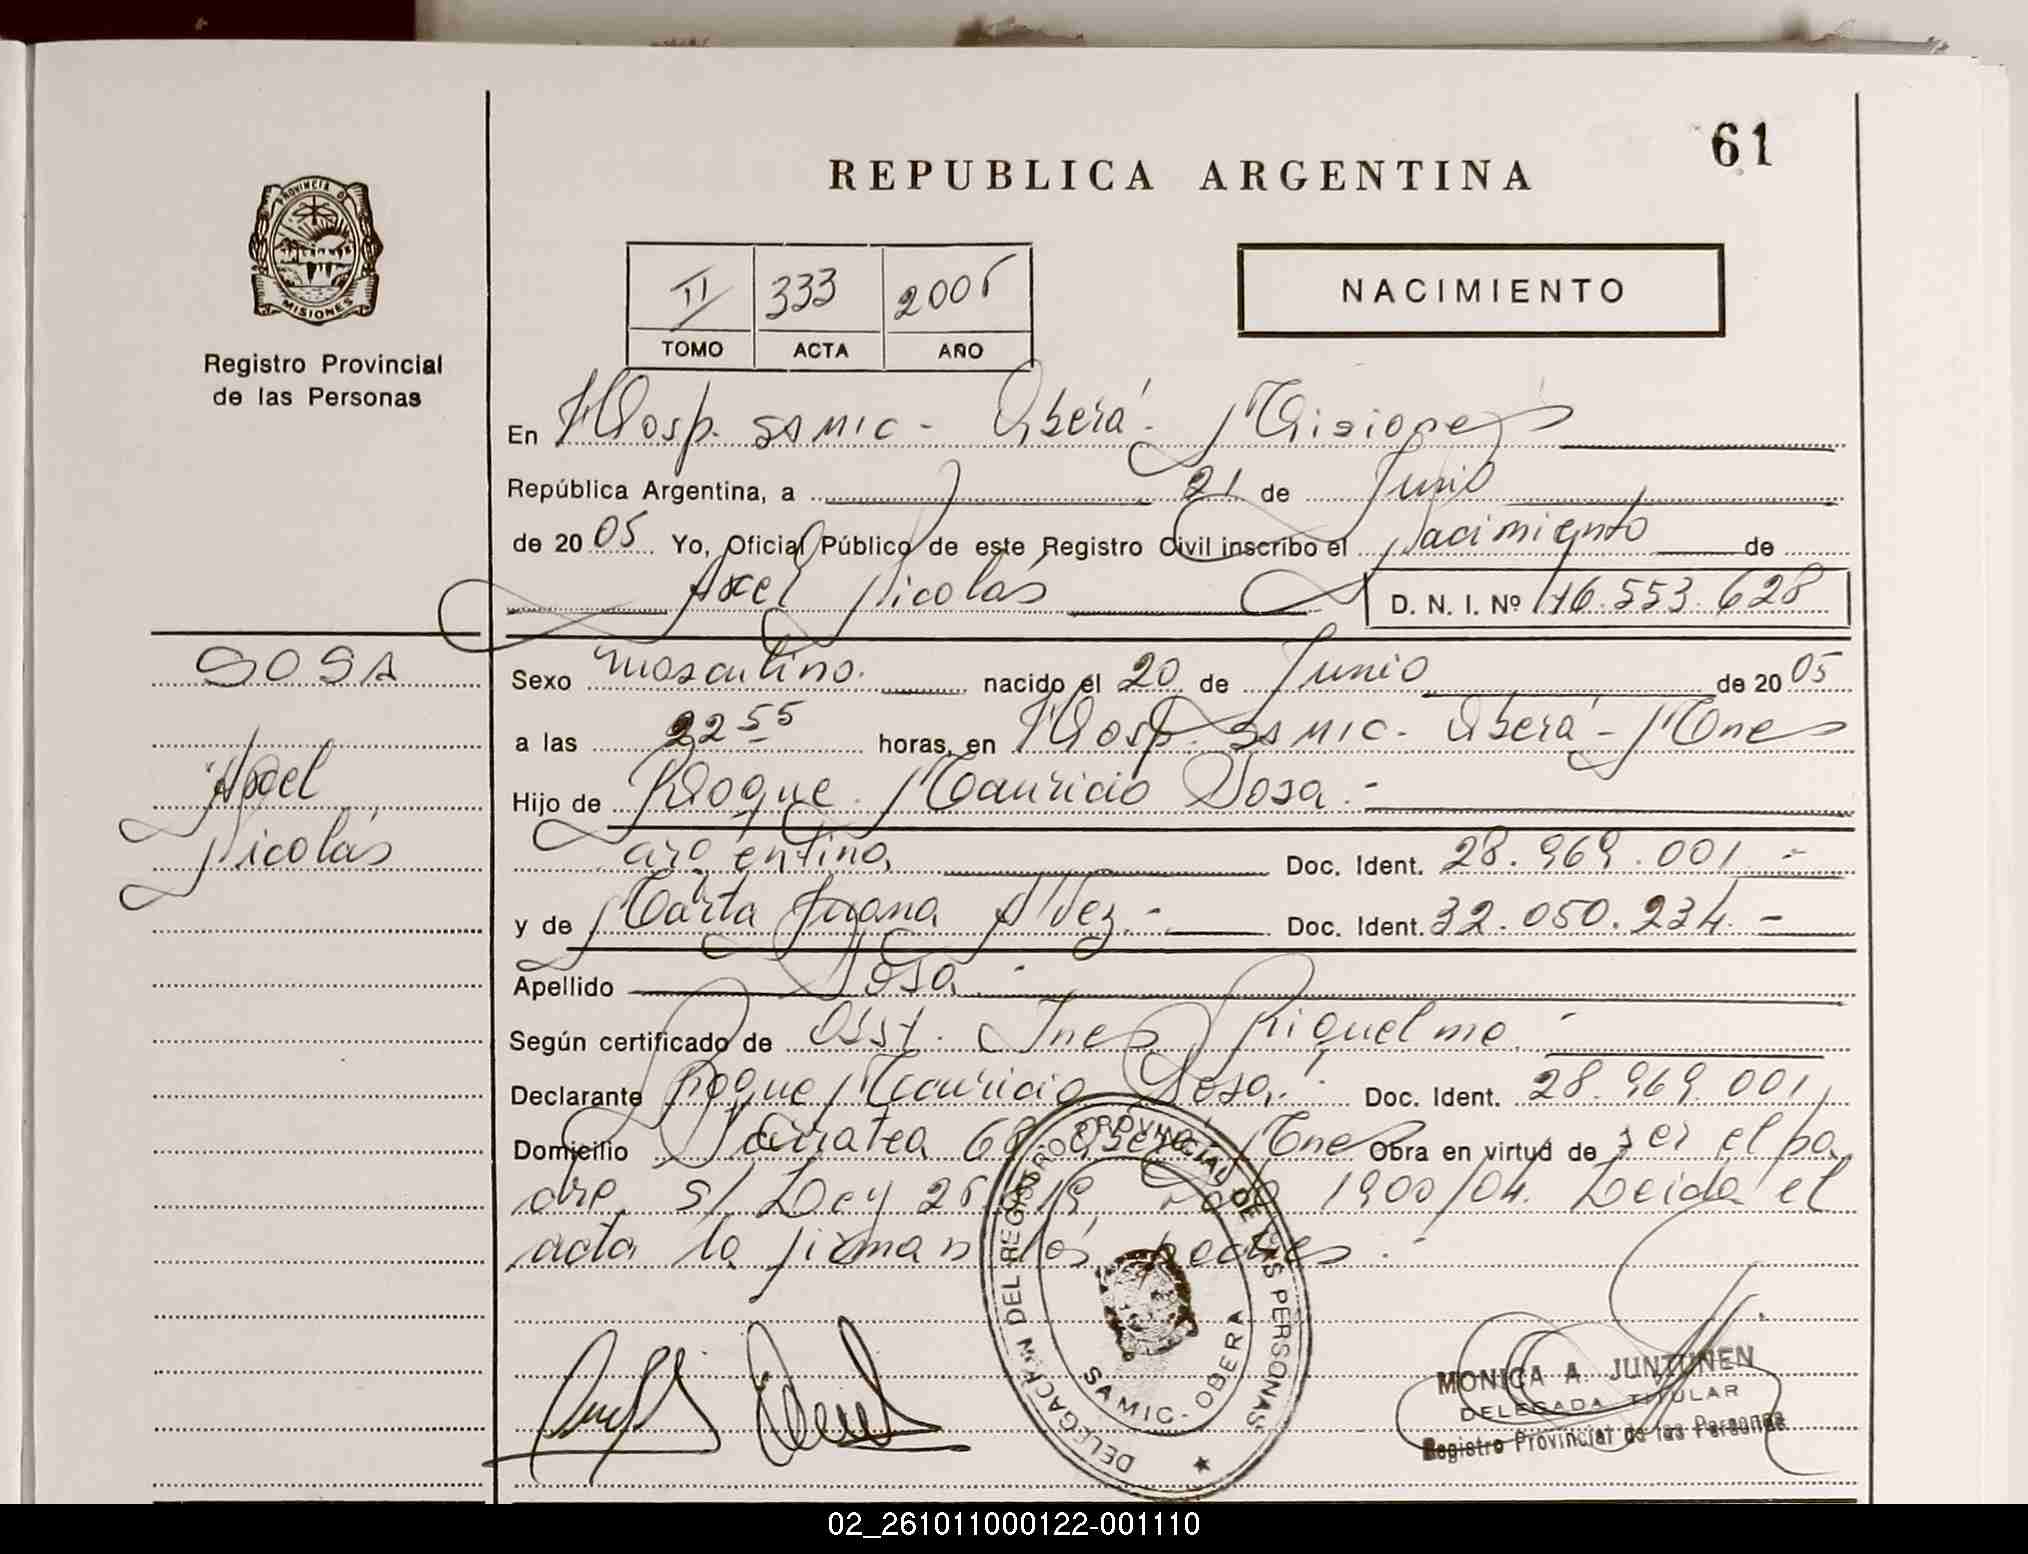 61
REPUBLICA ARGENTINA
PROVINCIA DE
MISIONES
Registro Provincial
de las Personas
II 333 2005
TOMO ACTA AÑO
NACIMIENTO
En Hosp. SAMIC - Oberá - Misiones
República Argentina, a 21 de Junio
de 2005 Yo, Oficial Público de este Registro Civil inscribo el Nacimiento de
Axel Nicolás D. N. I. Nº 46.553.628
SOSA
Axel
Nicolás
Sexo masculino. nacido el 20 de Junio de 2005
a las 22 55 horas, en Hosp. SAMIC - Oberá - Mnes
Hijo de Roque Mauricio Sosa. -
argentino, Doc. Ident. 28.969.001 -
y de Marta Juana Alvez. - Doc. Ident. 32.050.234. -
Apellido Sosa. -
Según certificado de Obst. Ines Riquelme. -
Declarante Roque Mauricio Sosa. - Doc. Ident. 28.969.001
Domicilio Sarratea 68 Oberá Mnes Obra en virtud de ser el pa
dre, s/ Ley 26 1900/04. Leida el
acta la firman los padres. -
DELEGACION DEL REGISTRO PROVINCIAL DE LAS PERSONAS
SAMIC - OBERA
MONICA A. JUNTUNEN
DELEGADA TITULAR
Registro Provincial de las Personas
02_261011000122-001110